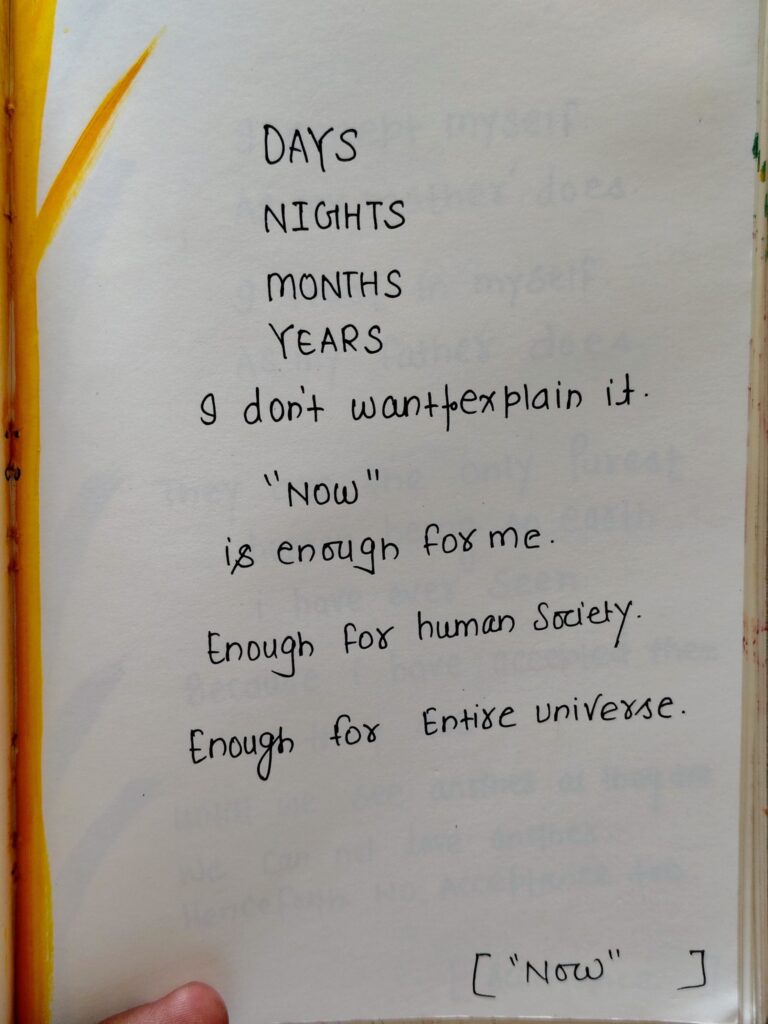 DAYS
NIGHTS
MONTHS
YEARS
I don't want to explain it.
"NOW"
is enough for me.
Enough for human Society.
Enough for Entire universe.
["NOW" ]